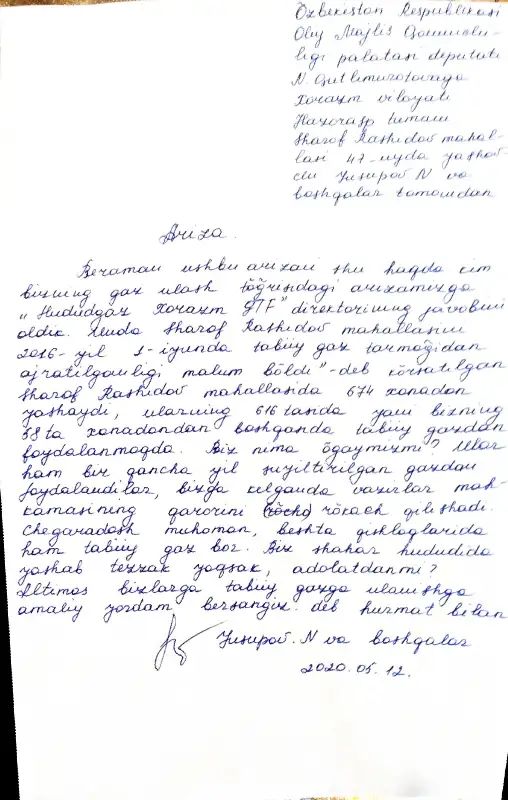 Özbekiston Respublikasi
Oliy Majlis Qonunchi-
ligi palatasi deputati
N. Qutlimurotovaga
Xorazm viloyati
Hazorasp tumani
Sharof Rashidov mahal-
lasi 47-uyda yashov-
chi Yusupov N va
boshqalar tomonidan
Ariza.
Beraman ushbu arizani shu haqda kim
bizning gaz ulash töğrisidagi arizamizga
"Hududgaz Xorazm GTF" direktorining javobini
oldik. Unda Sharof Rashidov mahallasini
2016-yil 1-iyunda tabiiy gaz tarmoğidan
ajratilganligi malum böldi"-deb körsatilgan
Sharof Rashidov mahallasida 674 xonadon
yashaydi, ularning 616 tasida yani bizning
58 ta xonadondan boshqanda tabiiy gazdan
foydalanmoqda. Biz nima ögaymizmi? Ular
ham bir qancha yil suyiltirilgan gazdan
foydalandilar, bizga kelganda vazirlar mah-
kamasining qarorini rökach qilishadi.
Chegaradosh muhomon, beshta qishloqlarida
ham tabiiy gaz bor. Biz shahar hududida
yashab tezzak yoqsak, adolatdanmi?
Iltimos bizlarga tabiiy gazga ulanishga
amaliy yordam bersangiz. deb hurmat bilan
Yusupov. N va boshqalar
2020.05.12.